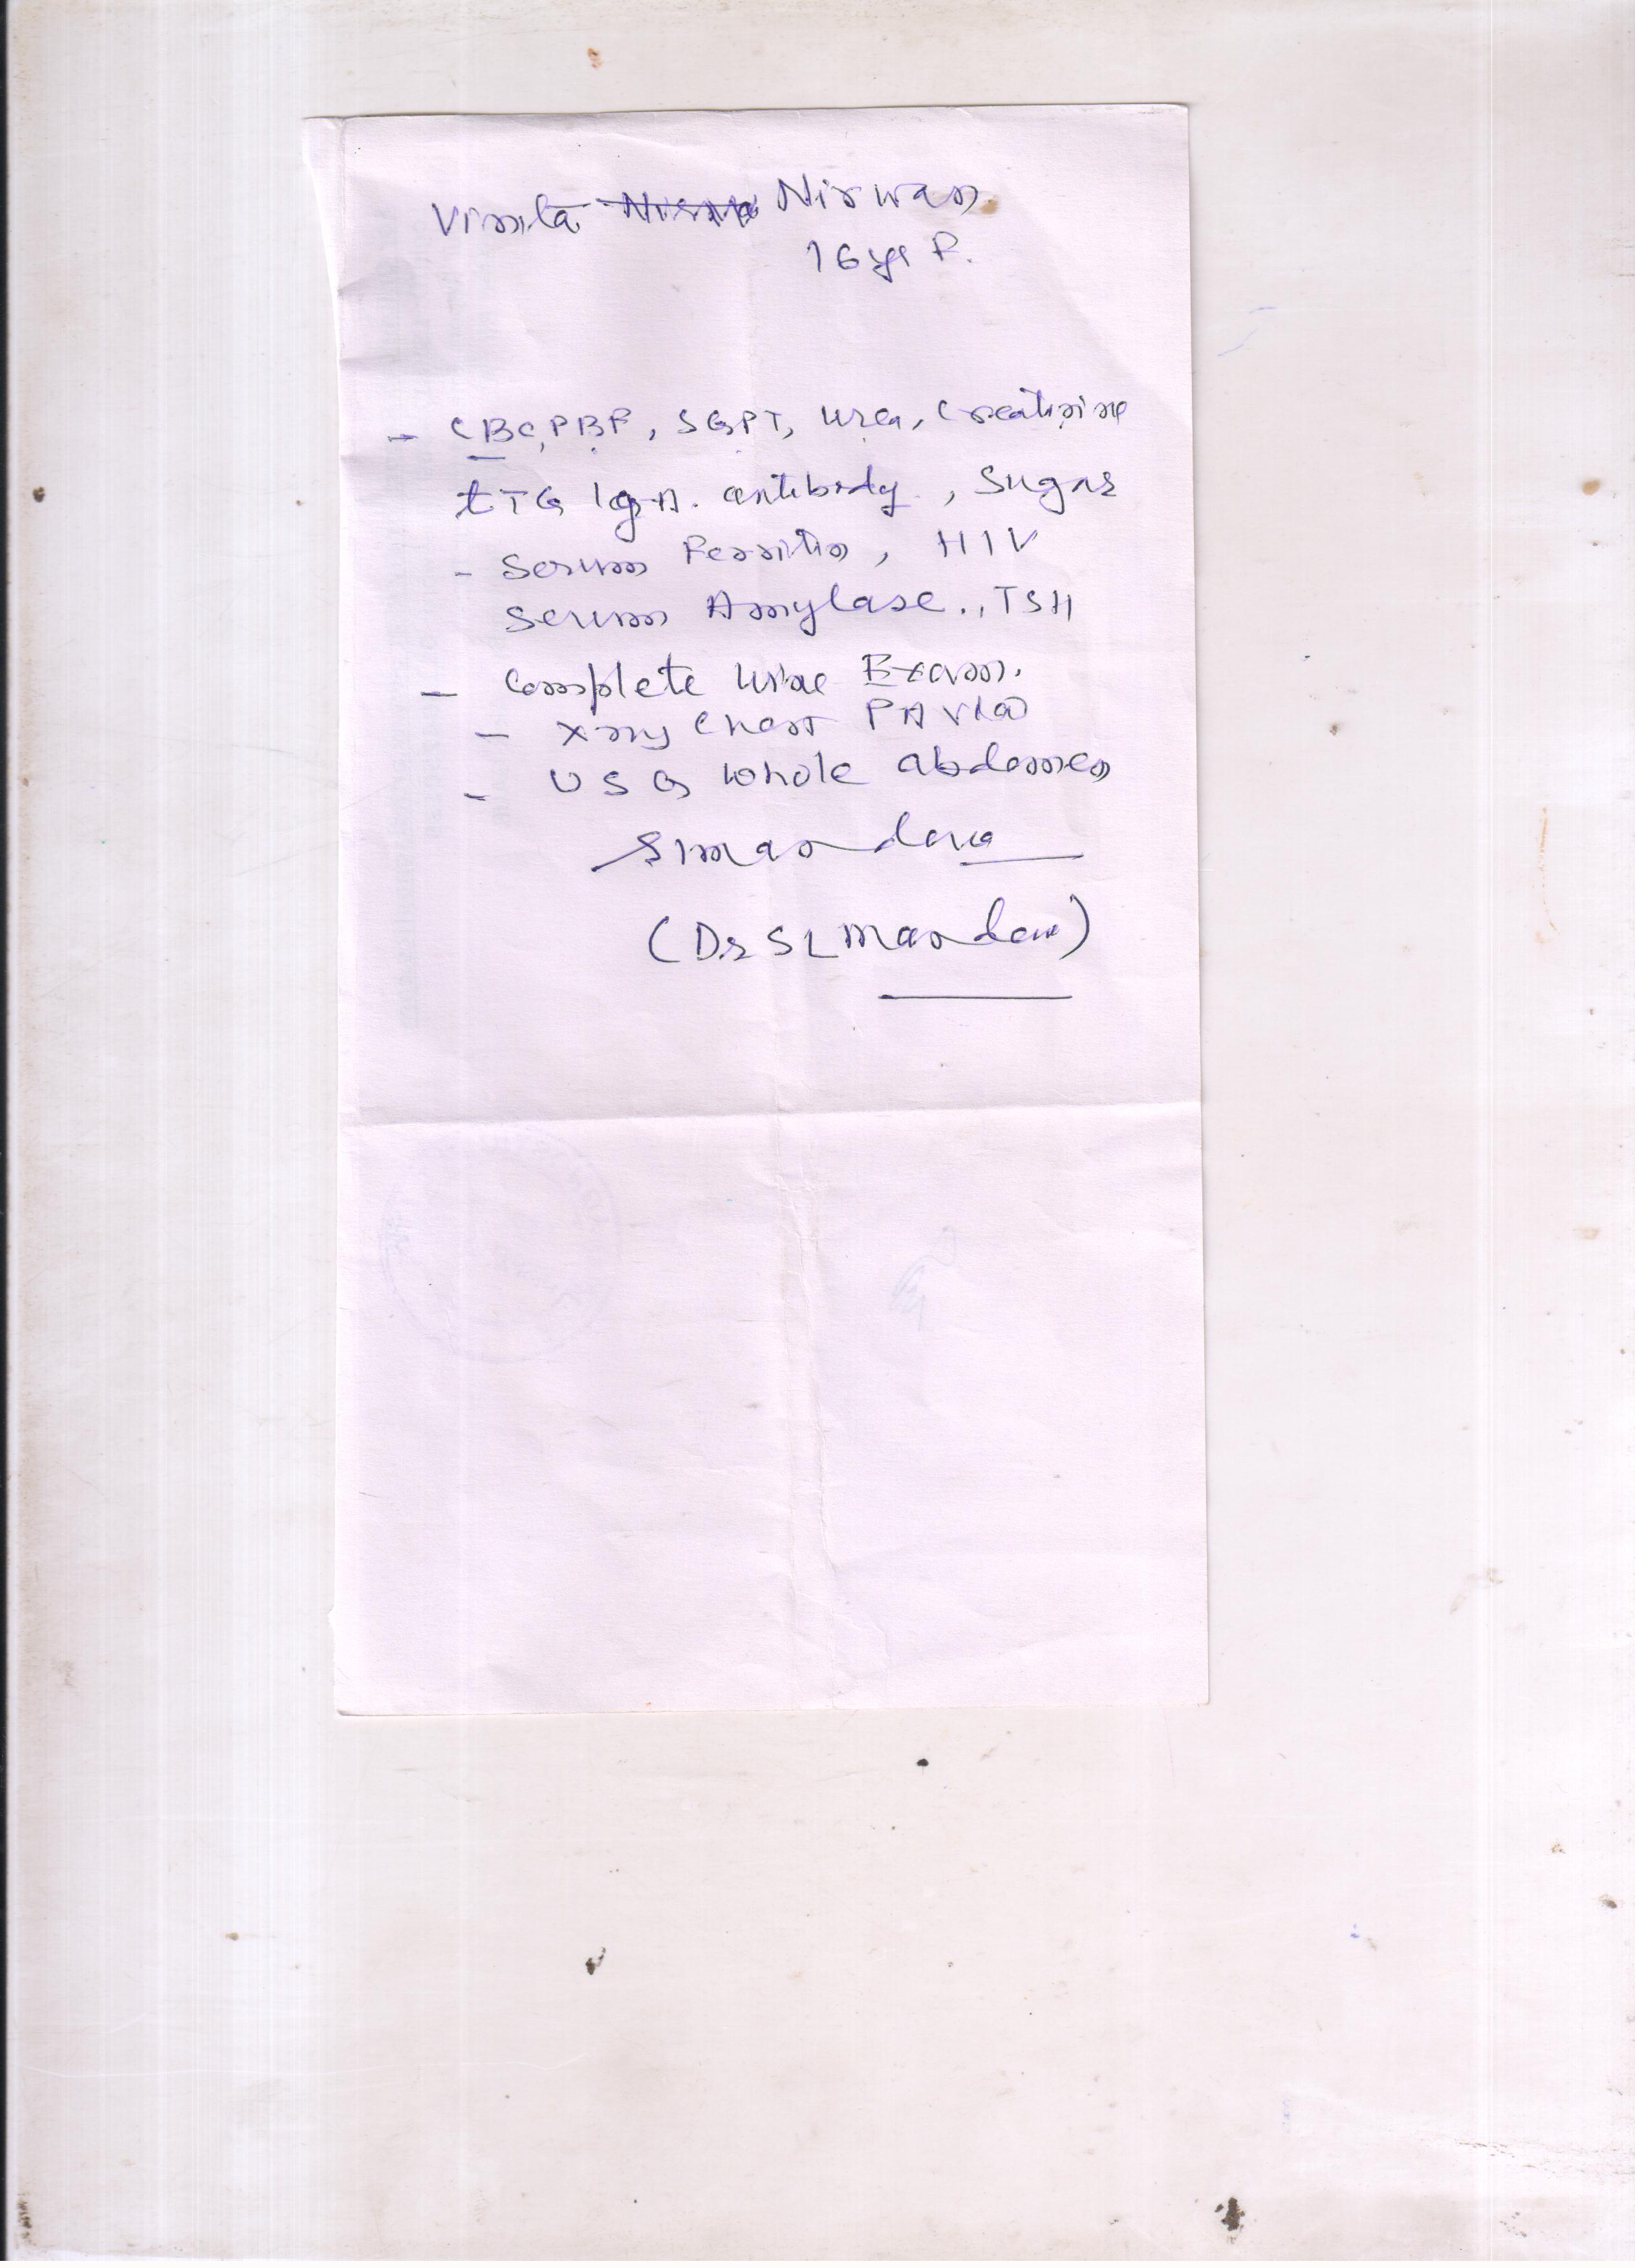 Vimla Nirwan
16 yr F.
- CBC, PBF, SGPT, Urea, Creatinine
tTG IgA. antibody, Sugar
- Serum Ferritin, HIV
Serum Amylase., TSH
- Complete Urine Exam.
- Xray Chest PA View
- USG Whole abdomen
(Dr SL Mandar)